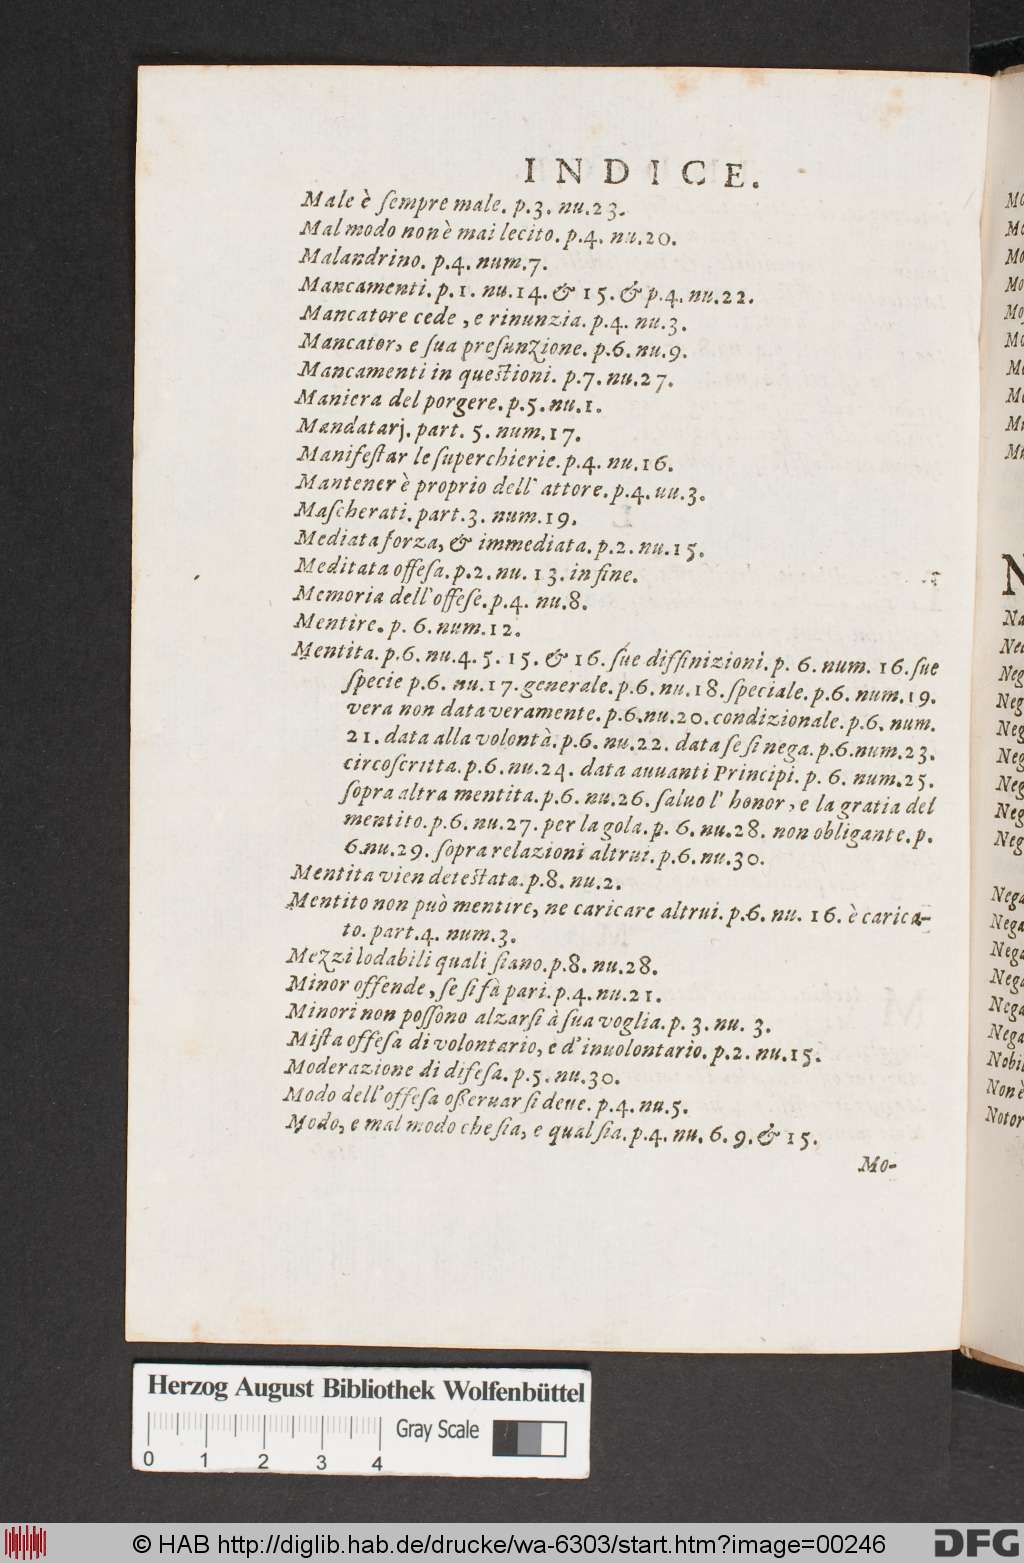 INDICE.
Male è ſempre male. p.3. nu.23.
Mal modo non è mai lecito. p.4. nu.20.
Malandrino. p.4. num.7.
Mancamenti. p.1. nu.14. & 15. & p.4. nu.22.
Mancatore cede, e rinunzia. p.4. nu.3.
Mancator, e ſua preſunzione. p.6. nu.9.
Mancamenti in queſtioni. p.7. nu.27.
Maniera del porgere. p.5. nu.1.
Mandatarj. part. 5. num.17.
Manifeſtar le ſuperchierie. p.4. nu.16.
Mantener è proprio dell' attore. p.4. uu.3.
Maſcherati. part.3. num.19.
Mediata forza, & immediata. p.2. nu.15.
Meditata offeſa. p.2. nu. 13. in fine.
Memoria dell'offeſe. p.4. nu.8.
Mentire. p. 6. num.12.
Mentita. p.6. nu.4. 5. 15. & 16. ſue diffinizioni. p. 6. num. 16. ſue
ſpecie p.6. nu.17. generale. p.6. nu.18. ſpeciale. p.6. num.19.
vera non data veramente. p.6. nu.20. condizionale. p.6. num.
21. data alla volontà. p.6. nu.22. data ſe ſi nega. p.6. num.23.
circoſcritta. p.6. nu.24. data auuanti Principi. p. 6. num.25.
ſopra altra mentita. p.6. nu.26. ſaluo l' honor, e la gratia del
mentito. p.6. nu.27. per la gola. p. 6. nu.28. non obligante. p.
6. nu.29. ſopra relazioni altrui. p.6. nu.30.
Mentita vien deteſtata. p.8. nu.2.
Mentito non può mentire, ne caricare altrui. p.6. nu. 16. è carica-
to. part.4. num.3.
Mezzi lodabili quali ſiano. p.8. nu.28.
Minor offende, ſe ſi fà pari. p.4. nu.21.
Minori non poſſono alzarſi à ſua voglia. p. 3. nu. 3.
Miſta offeſa di volontario, e d'inuolontario. p.2. nu.15.
Moderazione di difeſa. p.5. nu.30.
Modo dell'offeſa oßeruar ſi deue. p.4. nu.5.
Modo, e mal modo che ſia, e qual ſia. p.4. nu. 6. 9. & 15.
Mo-
N
Neg
Neg
Neg
Neg
Neg
Neg
Nega
Nega
Nega
Nega
Nega
Nega
Nobil
Non è
Notor
Herzog August Bibliothek Wolfenbüttel
Gray Scale
0 1 2 3 4
© HAB http://diglib.hab.de/drucke/wa-6303/start.htm?image=00246
DFG